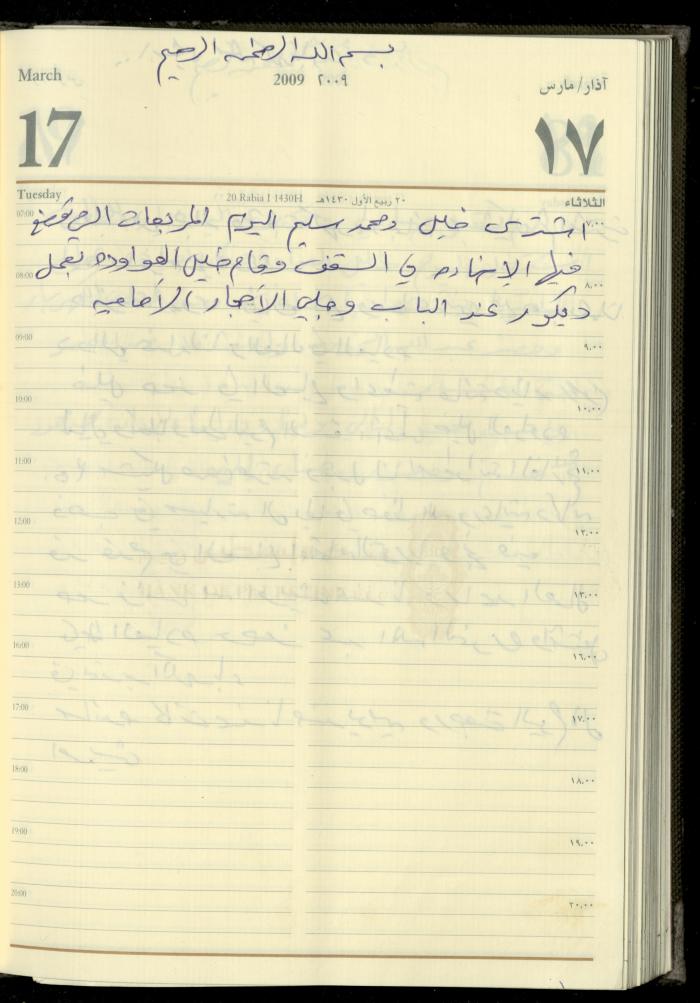 بسم الله الرحمن الرحيم
March
2009 ٢٠٠٩
آذار/مارس
17
١٧
Tuesday
20 Rabia I 1430H
٢٠ ربيع الأول ١٤٣٠هـ
الثلاثاء
07:00
٧,٠٠
اشترى خليل ومحمد سليم اليوم المربعات التي توضع
فيها الإنارة في السقف وقام خليل العواودة بعمل
08:00
٨,٠٠
ديكور عند الباب وجلي الأحجار الأمامية
09:00
٩,٠٠
10:00
١٠,٠٠
11:00
١١,٠٠
12:00
١٢,٠٠
13:00
١٣,٠٠
16:00
١٦,٠٠
17:00
١٧,٠٠
18:00
١٨,٠٠
19:00
١٩,٠٠
20:00
٢٠,٠٠